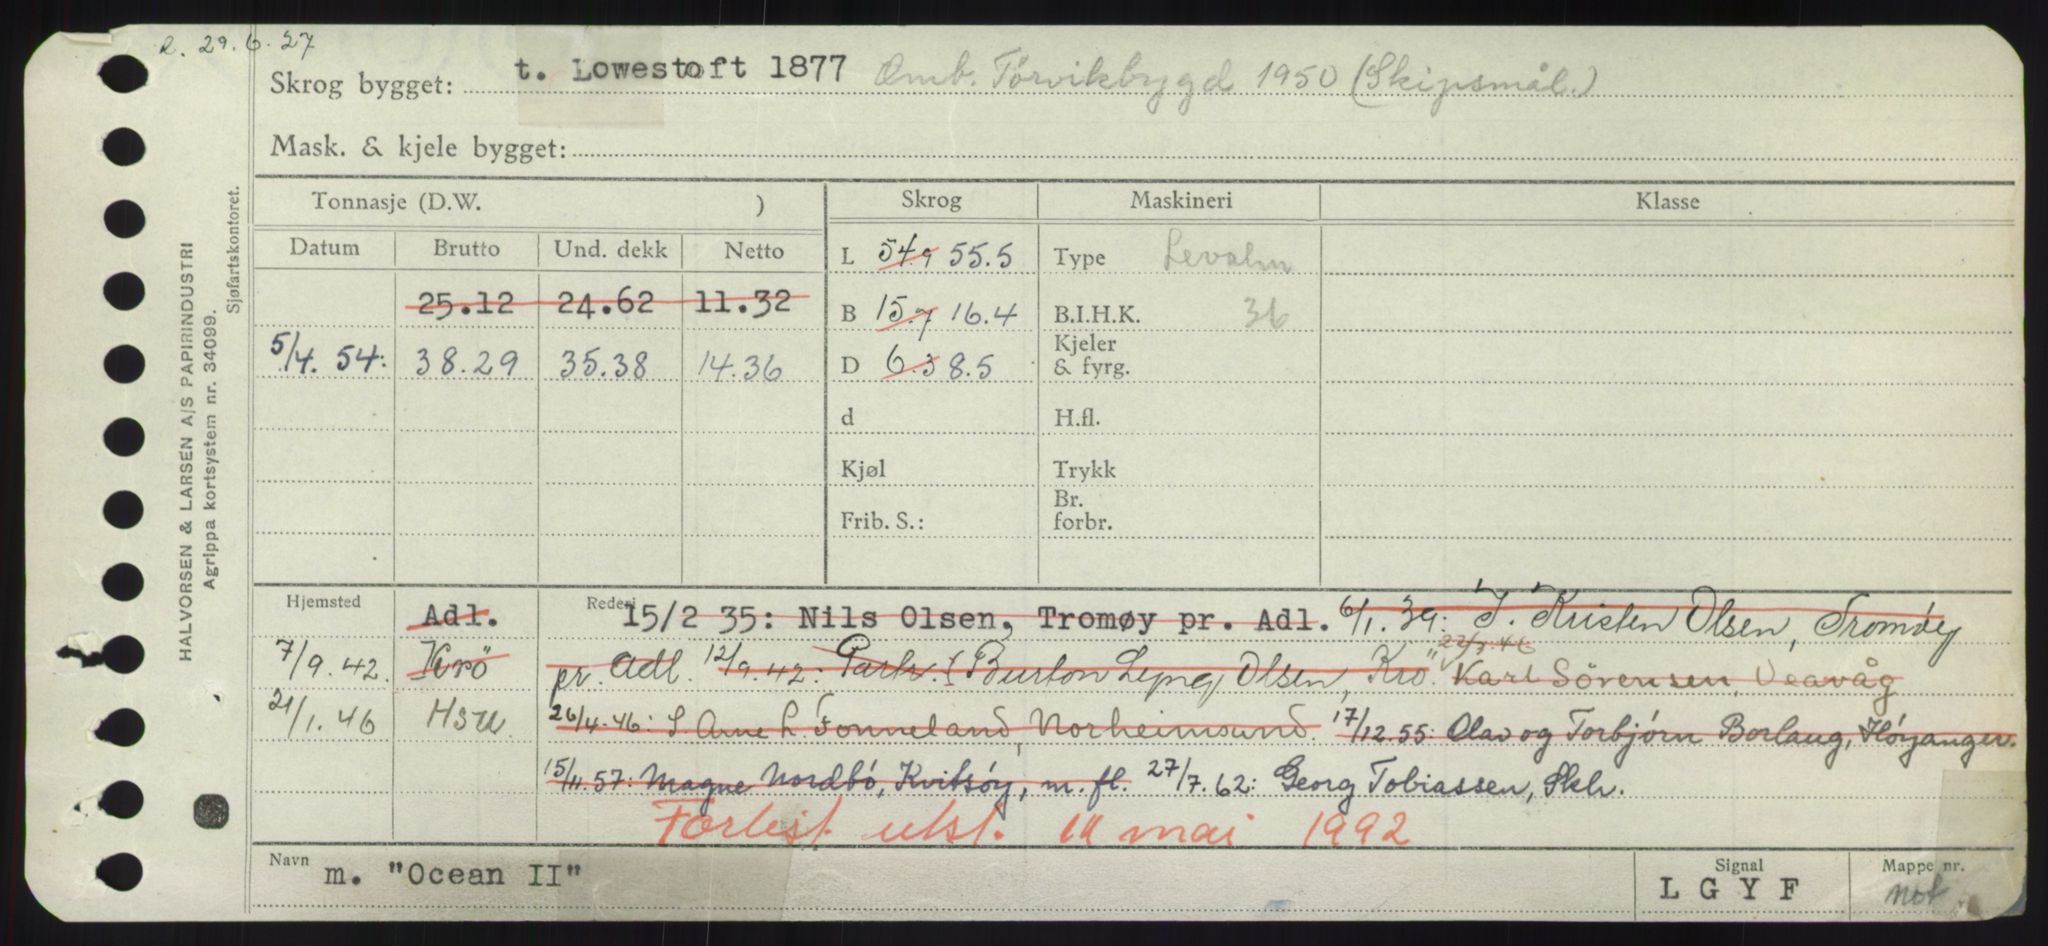 R. 29.6.27
Skrog bygget: t. Lowestoft 1877 Omb. Törvikbygd 1950 (Skipsmål.)
Mask. & kjele bygget:
HALVORSEN & LARSEN A/S PAPIRINDUSTRI
Agrippa kortsystem nr. 34099.
Sjøfartskontoret.
Tonnasje (D.W. ) Skrog Maskineri Klasse
Datum Brutto Und. dekk Netto
L 54.9 55.5 Type
25.12 24.62 11.32
B 15.7 16.4 B.I.H.K. 36
5/4. 54: 38.29 35.38 14.36
D 6.3 8.5 Kjeler & fyrg.
d H.fl.
Kjøl Trykk
Frib. S.: Br. forbr.
Hjemsted Adl. Rederi 15/2 35: Nils Olsen, Tromøy pr. Adl. 6/1. 39: I. Kristen Olsen, Tromøy
7/9.42. Krö pr. Adl. 12/9.42: (Burton Olsen, Krö. 22/3 46 Karl Sörensen, Veavåg
21/1.46 HSU. 26/4.46: Arne L Fonneland, Norheimsund. 17/12.55: Olav og Torbjörn Borlaug, Höyanger.
15/11.57: Magne Nordbö, Kvitsöy, m. fl. 27/7.62: Georg Tobiassen, Skh.
Forlist utst. 11 mai 1992
Navn m. "Ocean II" Signal LGYF Mappe nr. mot.